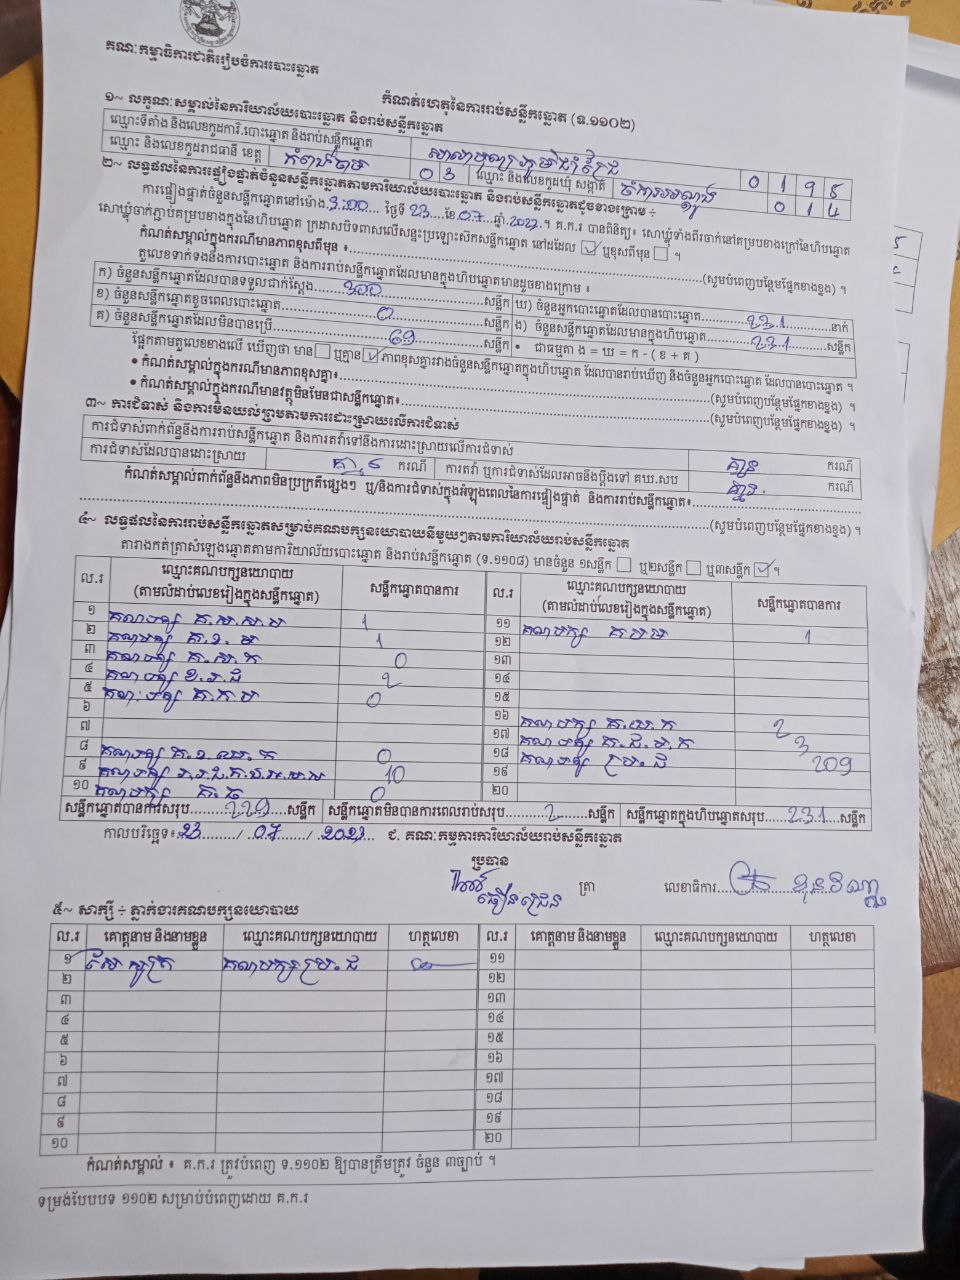 គណៈកម្មាធិការជាតិរៀបចំការបោះឆ្នោត
កំណត់ហេតុនៃការរាប់សន្លឹកឆ្នោត (ទ.១១០២)
១~ លក្ខណៈសម្គាល់នៃការិយាល័យបោះឆ្នោត និងរាប់សន្លឹកឆ្នោត
ឈ្មោះទីតាំង និងលេខកូដការិ.បោះឆ្នោត និងរាប់សន្លឹកឆ្នោត 0 1 9 5
ឈ្មោះ និងលេខកូដរាជធានី ខេត្ត កំពង់ចាម 0 3 ឈ្មោះ និងលេខកូដឃុំ សង្កាត់ 0 1 4
២~ លទ្ធផលនៃការផ្ទៀងផ្ទាត់ចំនួនសន្លឹកឆ្នោតតាមការិយាល័យបោះឆ្នោត និងរាប់សន្លឹកឆ្នោតដូចខាងក្រោម ÷
ការផ្ទៀងផ្ទាត់ចំនួនសន្លឹកឆ្នោតនៅម៉ោង 3:00 ថ្ងៃទី 23 ខែ 07 ឆ្នាំ 2023 ។ គ.ក.រ បានពិនិត្យ៖ សោឃ្លុំទាំងពីរចាក់នៅគម្របខាងក្រៅនៃហិបឆ្នោត
សោឃ្លុំចាក់ភ្ជាប់គម្របខាងក្នុងនៃហិបឆ្នោត ក្រដាសបិទពាសលើសន្ទះប្រឡោះស៊កសន្លឹកឆ្នោត នៅដដែល ឬខុសពីមុន ។
កំណត់សម្គាល់ក្នុងករណីមានភាពខុសពីមុន ៖ (សូមបំពេញបន្ថែមផ្នែកខាងខ្នង) ។
តួលេខទាក់ទងនឹងការបោះឆ្នោត និងការរាប់សន្លឹកឆ្នោតដែលមានក្នុងហិបឆ្នោតមានដូចខាងក្រោម ៖
ក) ចំនួនសន្លឹកឆ្នោតដែលបានទទួលជាក់ស្តែង 300 សន្លឹក ឃ) ចំនួនអ្នកបោះឆ្នោតដែលបានបោះឆ្នោត 231 នាក់
ខ) ចំនួនសន្លឹកឆ្នោតខូចពេលបោះឆ្នោត 0 សន្លឹក ង) ចំនួនសន្លឹកឆ្នោតដែលមានក្នុងហិបឆ្នោត 231 សន្លឹក
គ) ចំនួនសន្លឹកឆ្នោតដែលមិនបានប្រើ 69 សន្លឹក • ជាធម្មតា ង = ឃ = ក - ( ខ + គ )
ផ្អែកតាមតួលេខខាងលើ ឃើញថា មាន ឬគ្មាន ភាពខុសគ្នារវាងចំនួនសន្លឹកឆ្នោតក្នុងហិបឆ្នោត ដែលបានរាប់ឃើញ និងចំនួនអ្នកបោះឆ្នោត ដែលបានបោះឆ្នោត ។
• កំណត់សម្គាល់ក្នុងករណីមានភាពខុសគ្នា៖ (សូមបំពេញបន្ថែមផ្នែកខាងខ្នង) ។
• កំណត់សម្គាល់ក្នុងករណីមានវត្ថុមិនមែនជាសន្លឹកឆ្នោត៖ (សូមបំពេញបន្ថែមផ្នែកខាងខ្នង) ។
៣~ ការជំទាស់ និងការមិនយល់ព្រមតាមការដោះស្រាយលើការជំទាស់
ការជំទាស់ពាក់ព័ន្ធនឹងការរាប់សន្លឹកឆ្នោត និងការតវ៉ាទៅនឹងការដោះស្រាយលើការជំទាស់ គ្មាន ករណី
ការជំទាស់ដែលបានដោះស្រាយ គ្មាន ករណី ការតវ៉ា ឬការជំទាស់ដែលអាចនឹងប្តឹងទៅ គឃ.សប គ្មាន ករណី
កំណត់សម្គាល់ពាក់ព័ន្ធនឹងភាពមិនប្រក្រតីផ្សេងៗ ឬ/និងការជំទាស់ក្នុងអំឡុងពេលនៃការផ្ទៀងផ្ទាត់ និងការរាប់សន្លឹកឆ្នោត៖
(សូមបំពេញបន្ថែមផ្នែកខាងខ្នង) ។
៤~ លទ្ធផលនៃការរាប់សន្លឹកឆ្នោតសម្រាប់គណបក្សនយោបាយនីមួយៗតាមការិយាល័យរាប់សន្លឹកឆ្នោត
តារាងកត់ត្រាសំឡេងឆ្នោតតាមការិយាល័យបោះឆ្នោត និងរាប់សន្លឹកឆ្នោត (ទ.១១០៨) មានចំនួន ១សន្លឹក ឬ២សន្លឹក ឬ៣សន្លឹក ។
ល.រ ឈ្មោះគណបក្សនយោបាយ (តាមលំដាប់លេខរៀងក្នុងសន្លឹកឆ្នោត) សន្លឹកឆ្នោតបានការ ល.រ ឈ្មោះគណបក្សនយោបាយ (តាមលំដាប់លេខរៀងក្នុងសន្លឹកឆ្នោត) សន្លឹកឆ្នោតបានការ
១ គណបក្ស 1 ១១ គណបក្ស 1
២ គណបក្ស 1 ១២
៣ គណបក្ស 0 ១៣
៤ គណបក្ស 2 ១៤
៥ គណបក្ស 0 ១៥
៦ ១៦ គណបក្ស 2
៧ ១៧ គណបក្ស 3
៨ គណបក្ស 0 ១៨ គណបក្ស ប្រ.ជ 209
៩ គណបក្ស 10 ១៩
១០ គណបក្ស 0 ២០
សន្លឹកឆ្នោតបានការសរុប 229 សន្លឹក សន្លឹកឆ្នោតមិនបានការពេលរាប់សរុប 2 សន្លឹក សន្លឹកឆ្នោតក្នុងហិបឆ្នោតសរុប 231 សន្លឹក
កាលបរិច្ឆេទ៖ 23 / 07 / 2023 ជ. គណៈកម្មការការិយាល័យរាប់សន្លឹកឆ្នោត
ប្រធាន
ត្រា លេខាធិការ
៥~ សាក្សី ÷ ភ្នាក់ងារគណបក្សនយោបាយ
ល.រ គោត្តនាម និងនាមខ្លួន ឈ្មោះគណបក្សនយោបាយ ហត្ថលេខា ល.រ គោត្តនាម និងនាមខ្លួន ឈ្មោះគណបក្សនយោបាយ ហត្ថលេខា
១ គណបក្សប្រ.ជ ១១
២ ១២
៣ ១៣
៤ ១៤
៥ ១៥
៦ ១៦
៧ ១៧
៨ ១៨
៩ ១៩
១០ ២០
កំណត់សម្គាល់ ៖ គ.ក.រ ត្រូវបំពេញ ទ.១១០២ ឱ្យបានត្រឹមត្រូវ ចំនួន ៣ច្បាប់ ។
ទម្រង់បែបបទ ១១០២ សម្រាប់បំពេញដោយ គ.ក.រ